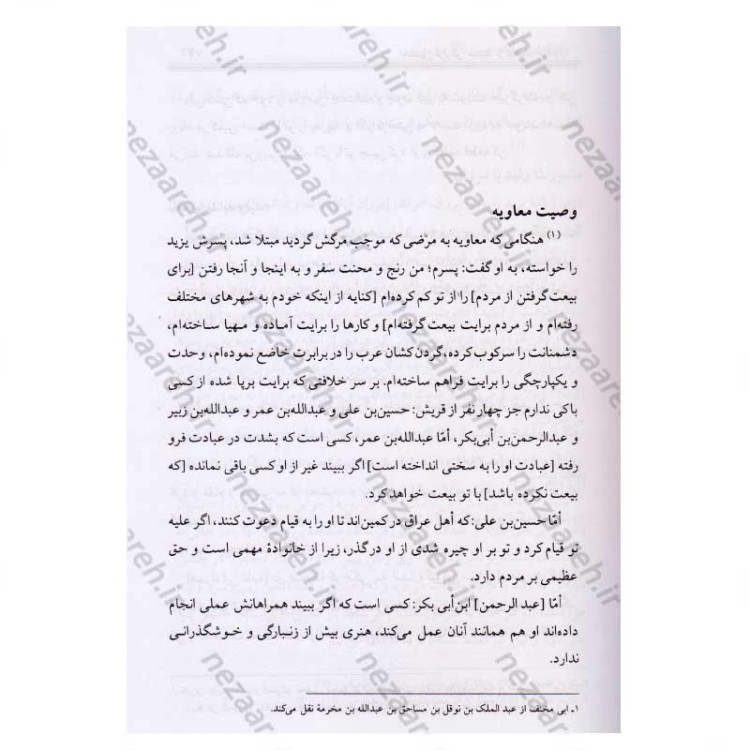 وصیت معاویه
(۱) هنگامی که معاویه به مرضی که موجب مرگش گردید مبتلا شد، پسرش یزید
را خواسته، به او گفت: پسرم؛ من رنج و محنت سفر و به اینجا و آنجا رفتن [برای
بیعت گرفتن از مردم] را از تو کم کرده‌ام [کنایه از اینکه خودم به شهرهای مختلف
رفته‌ام و از مردم برایت بیعت گرفته‌ام] و کارها را برایت آماده و مهیا ساخته‌ام،
دشمنانت را سرکوب کرده، گردن‌کشان عرب را در برابرت خاضع نموده‌ام، وحدت
و یکپارچگی را برایت فراهم ساخته‌ام. بر سر خلافتی که برایت برپا شده از کسی
باکی ندارم جز چهار نفر از قریش: حسین‌بن علی و عبدالله‌بن عمر و عبدالله‌بن زبیر
و عبدالرحمن‌بن أبی‌بکر، امّا عبدالله‌بن عمر، کسی است که بشدت در عبادت فرو
رفته [عبادت او را به سختی انداخته است] اگر ببیند غیر از او کسی باقی نمانده [که
بیعت نکرده باشد] با تو بیعت خواهد کرد.
امّا حسین‌بن علی: که أهل عراق در کمین‌اند تا او را به قیام دعوت کنند، اگر علیه
تو قیام کرد و تو بر او چیره شدی از او درگذر، زیرا از خانوادهٔ مهمی است و حق
عظیمی بر مردم دارد.
امّا [عبد الرحمن] ابن‌أبی بکر: کسی است که اگر ببیند همراهانش عملی انجام
داده‌اند او هم همانند آنان عمل می‌کند، هنری بیش از زنبارگی و خوشگذرانی
ندارد.
۱ـ ابی مخنف از عبد الملک بن نوفل بن مساحق بن عبدالله بن مخرمة نقل می‌کند.
nezaareh.ir